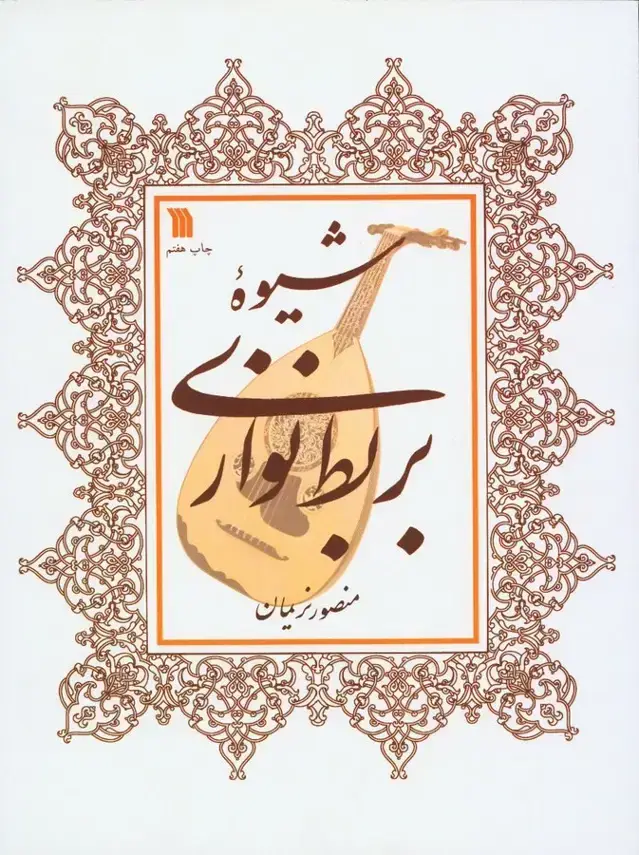 چاپ هفتم
شیوهٔ
بربط نوازی
منصور نریمان